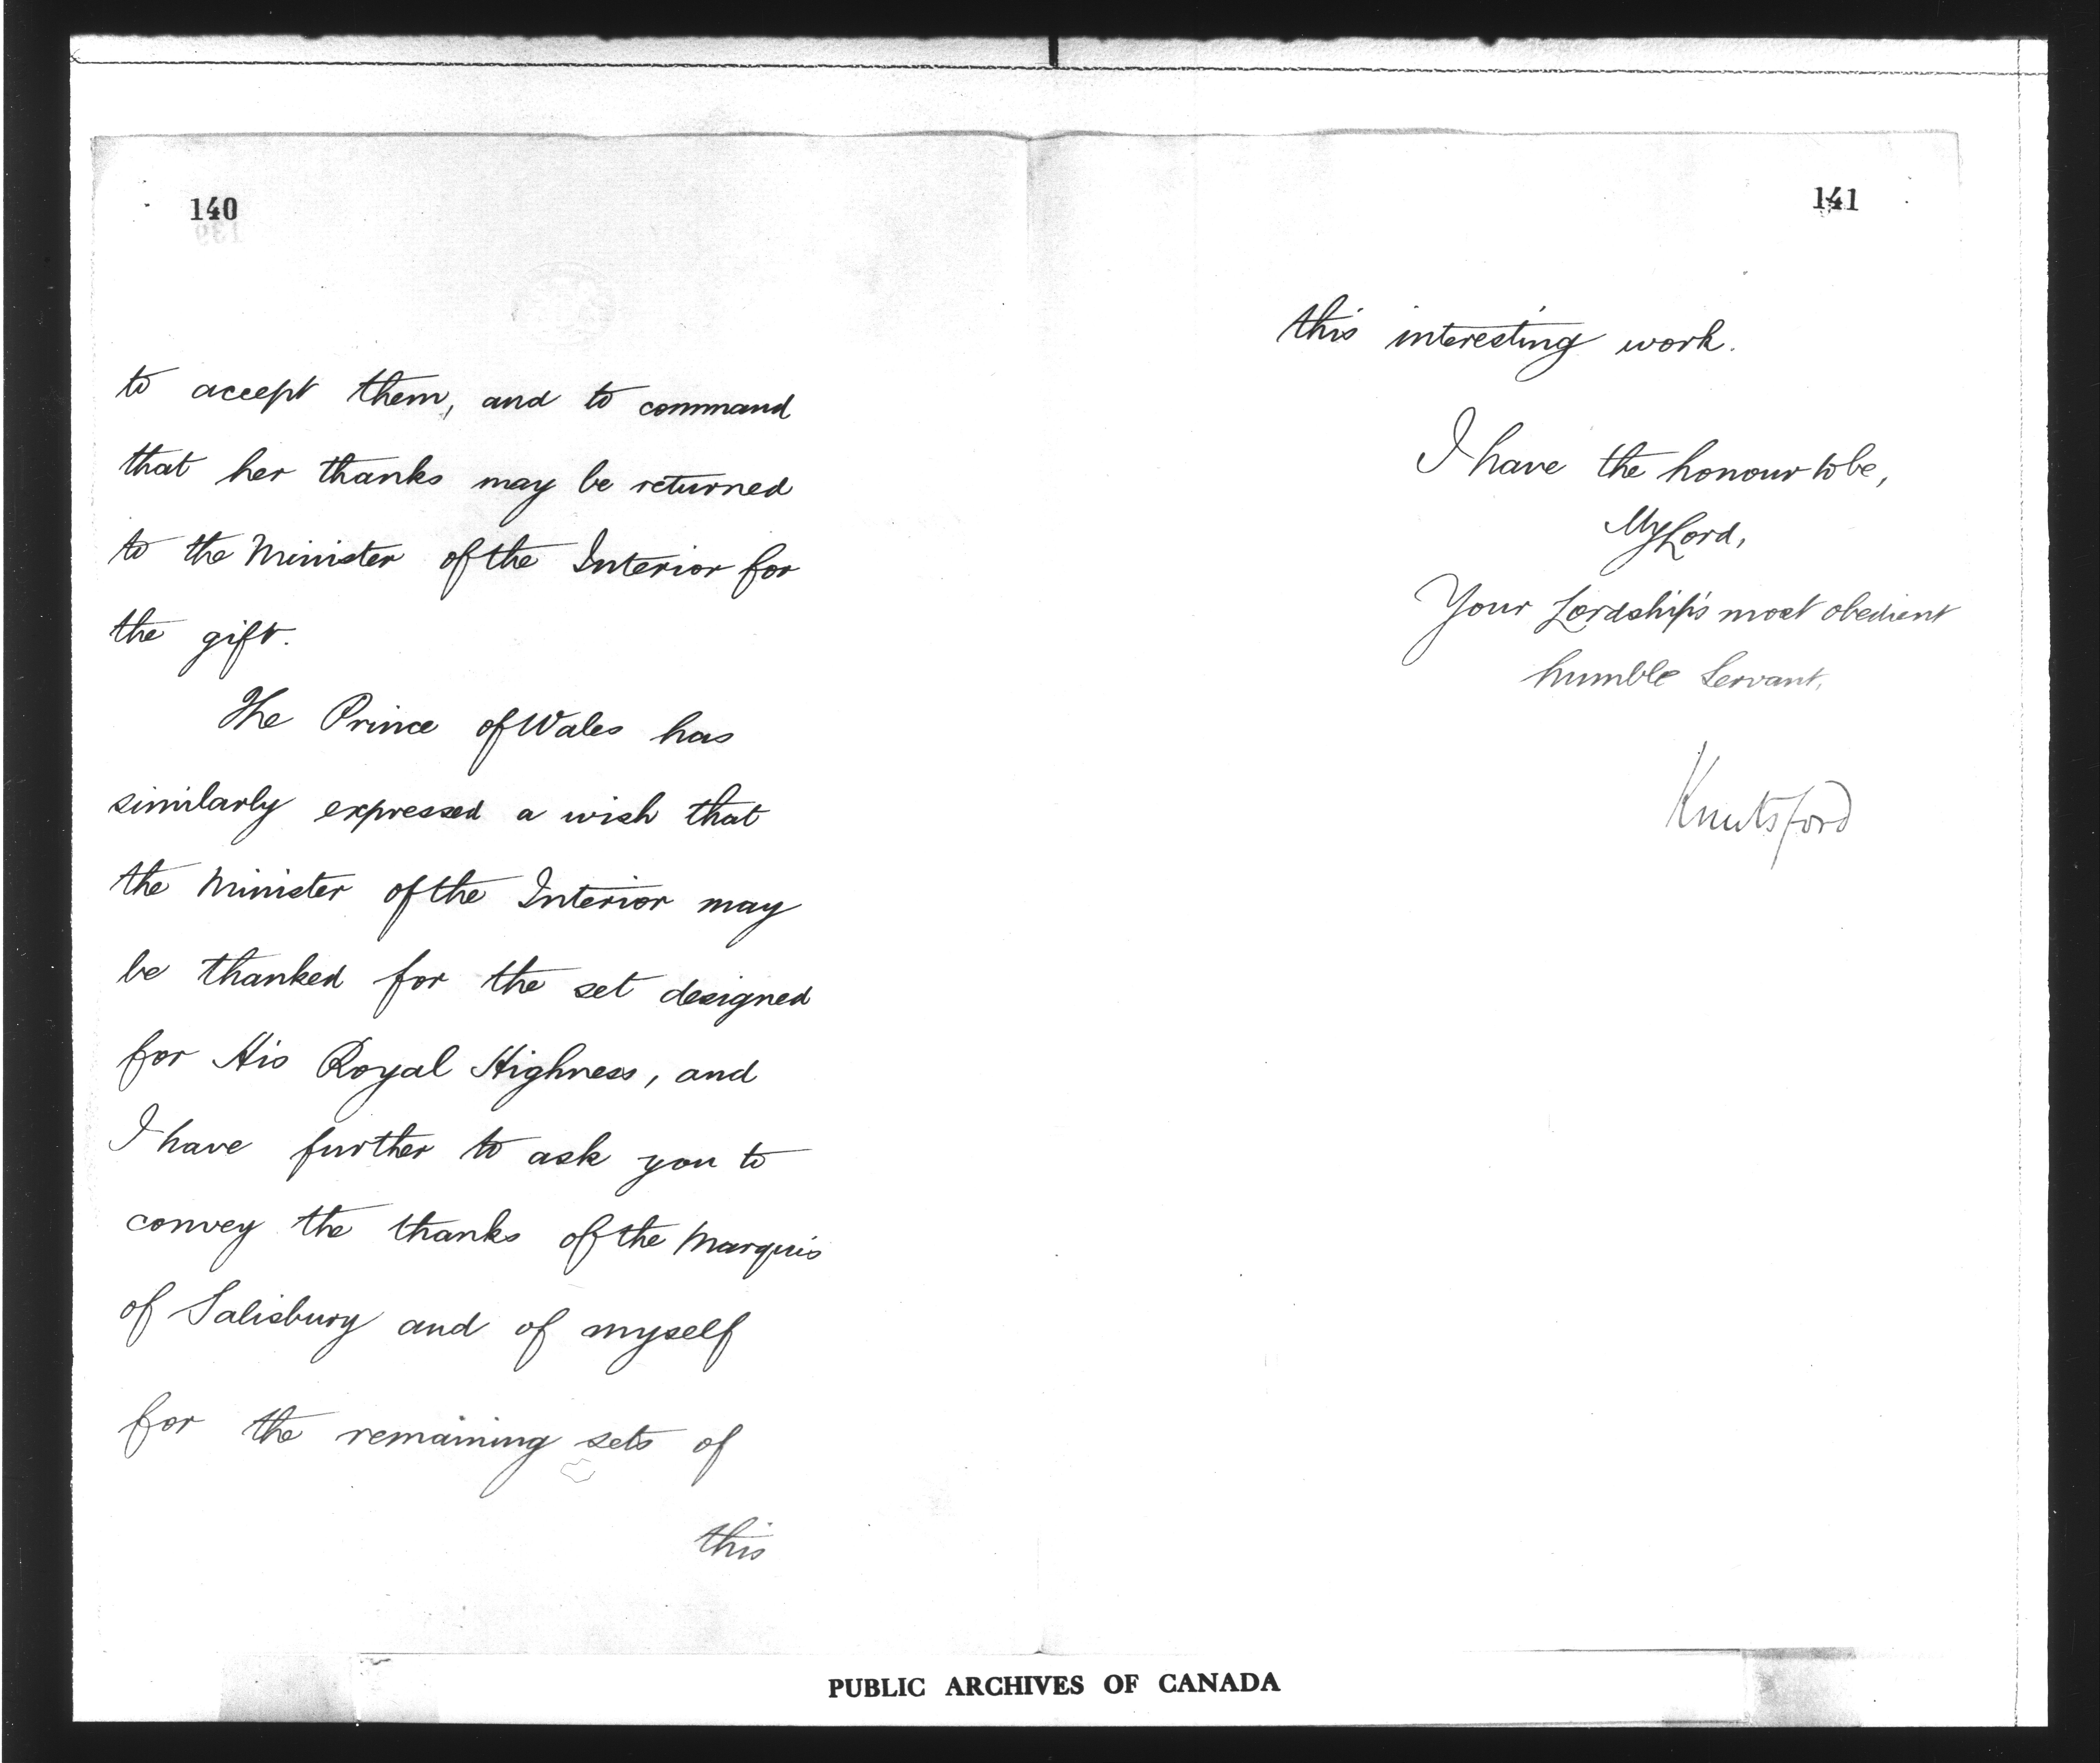 140
to accept them, and to command
that her thanks may be returned
to the Minister of the Interior for
the gift.
The Prince of Wales has
similarly expressed a wish that
the Minister of the Interior may
be thanked for the set designed
for His Royal Highness, and
I have further to ask you to
convey the thanks of the Marquis
of Salisbury and of myself
for the remaining sets of
this
141
this interesting work.
I have the honour to be,
My Lord,
Your Lordship's most obedient
humble Servant,
Knutsford
PUBLIC ARCHIVES OF CANADA